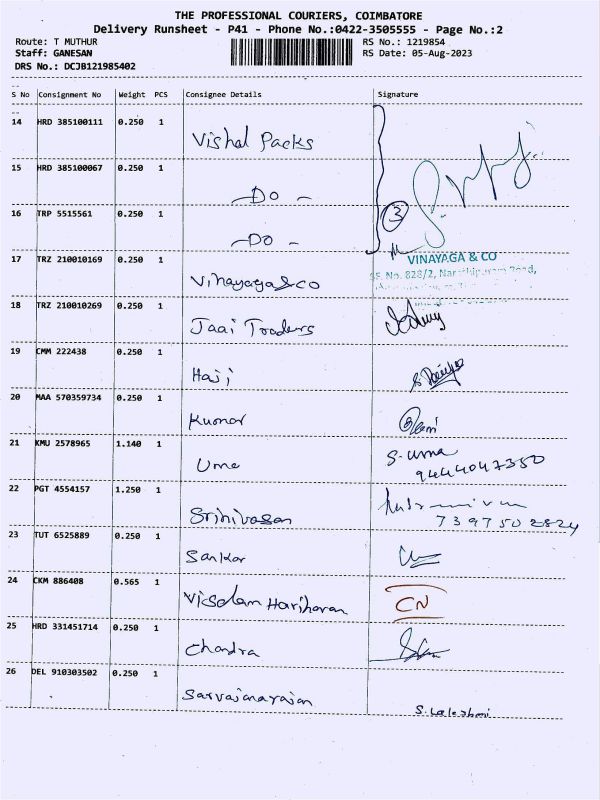 THE PROFESSIONAL COURIERS, COIMBATORE
Delivery Runsheet - P41 - Phone No.:0422-3505555 - Page No.:2
Route: T MUTHUR RS No.: 1219854
Staff: GANESAN RS Date: 05-Aug-2023
DRS No.: DCJB121985402
S No Consignment No Weight PCS Consignee Details Signature
14 HRD 385100111 0.250 1 Vishal Packs
15 HRD 385100067 0.250 1 - Do -
16 TRP 5515561 0.250 1 - Do -
3
17 TRZ 210010169 0.250 1 Vinayaga & co
VINAYAGA & CO
S.F. No. 828/2, Narathipuram Road,
18 TRZ 210010269 0.250 1 Jaai Traders
19 CMM 222438 0.250 1 Haji
20 MAA 570359734 0.250 1 Kumar
21 KMU 2578965 1.140 1 Uma S. uma
9444047350
22 PGT 4554157 1.250 1 Srinivasan
7397502824
23 TUT 6525889 0.250 1 Sankar
24 CKM 886408 0.565 1 Visalam Hariharan CN
25 HRD 331451714 0.250 1 Chandra
26 DEL 910303502 0.250 1 Sarvajanarajan S. Lalekshmi